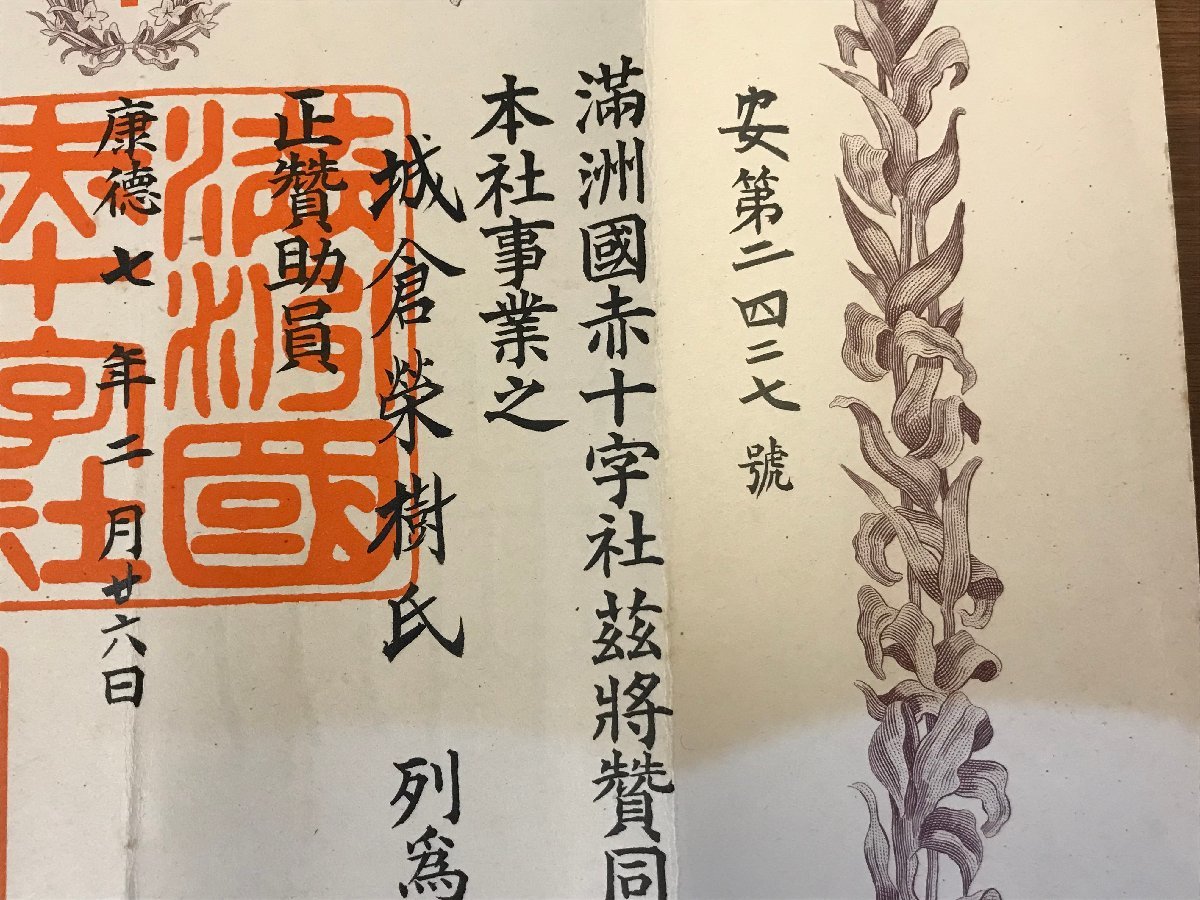 安第二四二七號
滿洲國赤十字社茲將贊同
本社事業之
城倉榮樹氏 列爲
正贊助員
康德七年二月廿六日
滿洲國
赤十字社